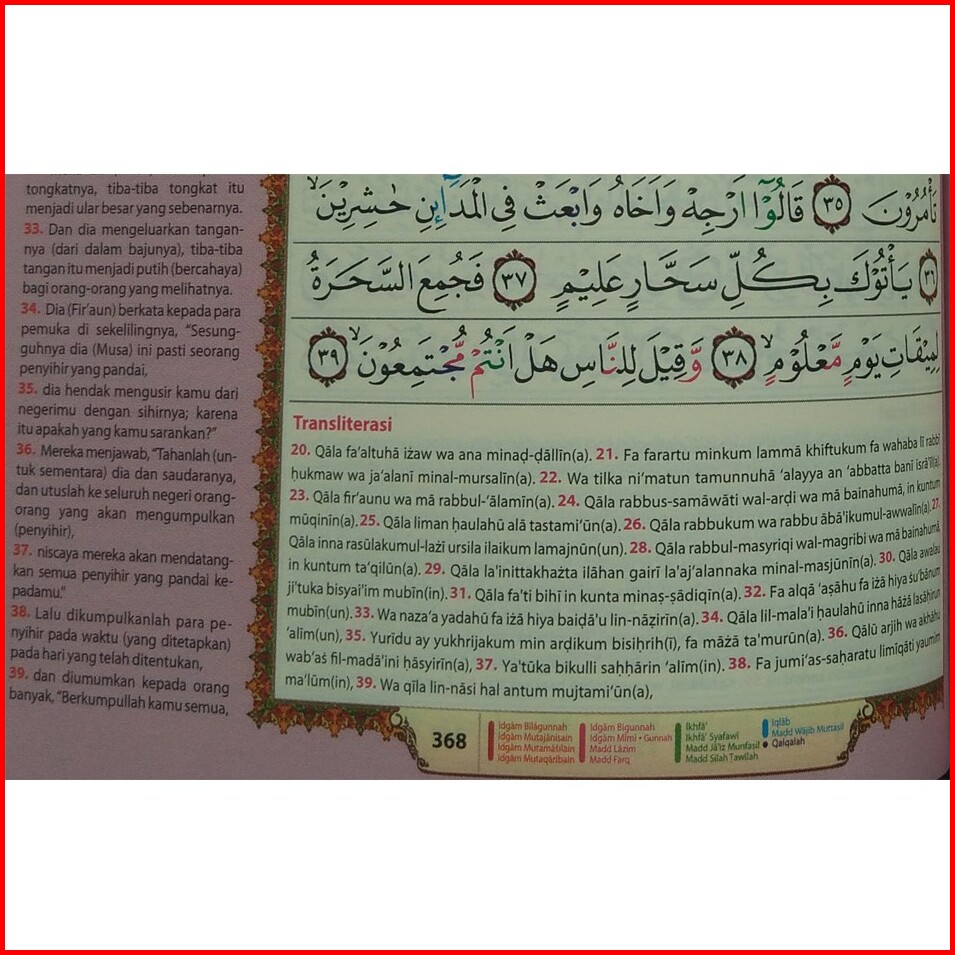 tongkatnya, tiba-tiba tongkat itu
menjadi ular besar yang sebenarnya.
33. Dan dia mengeluarkan tangan-
nya (dari dalam bajunya), tiba-tiba
tangan itu menjadi putih (bercahaya)
bagi orang-orang yang melihatnya.
34. Dia (Fir'aun) berkata kepada para
pemuka di sekelilingnya, "Sesung-
guhnya dia (Musa) ini pasti seorang
penyihir yang pandai,
35. dia hendak mengusir kamu dari
negerimu dengan sihirnya; karena
itu apakah yang kamu sarankan?"
36. Mereka menjawab, "Tahanlah (un-
tuk sementara) dia dan saudaranya,
dan utuslah ke seluruh negeri orang-
orang yang akan mengumpulkan
(penyihir),
37. niscaya mereka akan mendatang-
kan semua penyihir yang pandai ke-
padamu."
38. Lalu dikumpulkanlah para pe-
nyihir pada waktu (yang ditetapkan)
pada hari yang telah ditentukan,
39. dan diumumkan kepada orang
banyak, "Berkumpullah kamu semua,
تَأْمُرُوْنَ ٣٥ قَالُوْٓا اَرْجِهْ وَاَخَاهُ وَابْعَثْ فِى الْمَدَاۤىِٕنِ حٰشِرِيْنَۙ
٣٦ يَأْتُوْكَ بِكُلِّ سَحَّارٍ عَلِيْمٍ ٣٧ فَجُمِعَ السَّحَرَةُ
لِمِيْقَاتِ يَوْمٍ مَّعْلُوْمٍۙ ٣٨ وَّقِيْلَ لِلنَّاسِ هَلْ اَنْتُمْ مُّجْتَمِعُوْنَۙ ٣٩
Transliterasi
20. Qāla fa'altuhā iżaw wa ana minaḍ-ḍāllīn(a). 21. Fa farartu minkum lammā khiftukum fa wahaba lī rabbī
ḥukmaw wa ja'alanī minal-mursalīn(a). 22. Wa tilka ni'matun tamunnuhā 'alayya an 'abbatta banī isrā'īl(a).
23. Qāla fir'aunu wa mā rabbul-'ālamīn(a). 24. Qāla rabbus-samāwāti wal-arḍi wa mā bainahumā, in kuntum
mūqinīn(a). 25. Qāla liman ḥaulahū alā tastami'ūn(a). 26. Qāla rabbukum wa rabbu ābā'ikumul-awwalīn(a). 27.
Qāla inna rasūlakumul-lażī ursila ilaikum lamajnūn(un). 28. Qāla rabbul-masyriqi wal-magribi wa mā bainahumā,
in kuntum ta'qilūn(a). 29. Qāla la'inittakhażta ilāhan gairī la'aj'alannaka minal-masjūnīn(a). 30. Qāla awalau
ji'tuka bisyai'im mubīn(in). 31. Qāla fa'ti bihī in kunta minaṣ-ṣādiqīn(a). 32. Fa alqā 'aṣāhu fa iżā hiya ṡu'bānum
mubīn(un). 33. Wa naza'a yadahū fa iżā hiya baiḍā'u lin-nāẓirīn(a). 34. Qāla lil-mala'i ḥaulahū inna hāżā lasāḥirun
'alīm(un), 35. Yurīdu ay yukhrijakum min arḍikum bisiḥrih(ī), fa māżā ta'murūn(a). 36. Qālū arjih wa akhāhu
wab'aṡ fil-madā'ini ḥāsyirīn(a), 37. Ya'tūka bikulli saḥḥārin 'alīm(in). 38. Fa jumi'as-saḥaratu limīqāti yaumim
ma'lūm(in), 39. Wa qīla lin-nāsi hal antum mujtami'ūn(a),
368
Idgām Bilāgunnah
Idgām Mutajānisain
Idgām Mutamāṡilain
Idgām Mutaqāribain
Idgām Bigunnah
Idgām Mīmi • Gunnah
Madd Lāzim
Madd Farq
Ikhfā'
Ikhfā' Syafawī
Madd Jā'iz Munfaṣil
Madd Ṣilah Ṭawīlah
Iqlāb
Madd Wājib Muttaṣil
Qalqalah